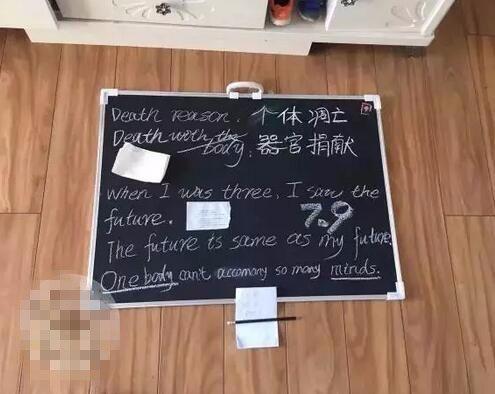 Death reason. 个体凋亡
Death with the body: 器官捐献
When I was three, I saw the
future.
7.9
The future is same as my future
One body can't accomany so many minds.